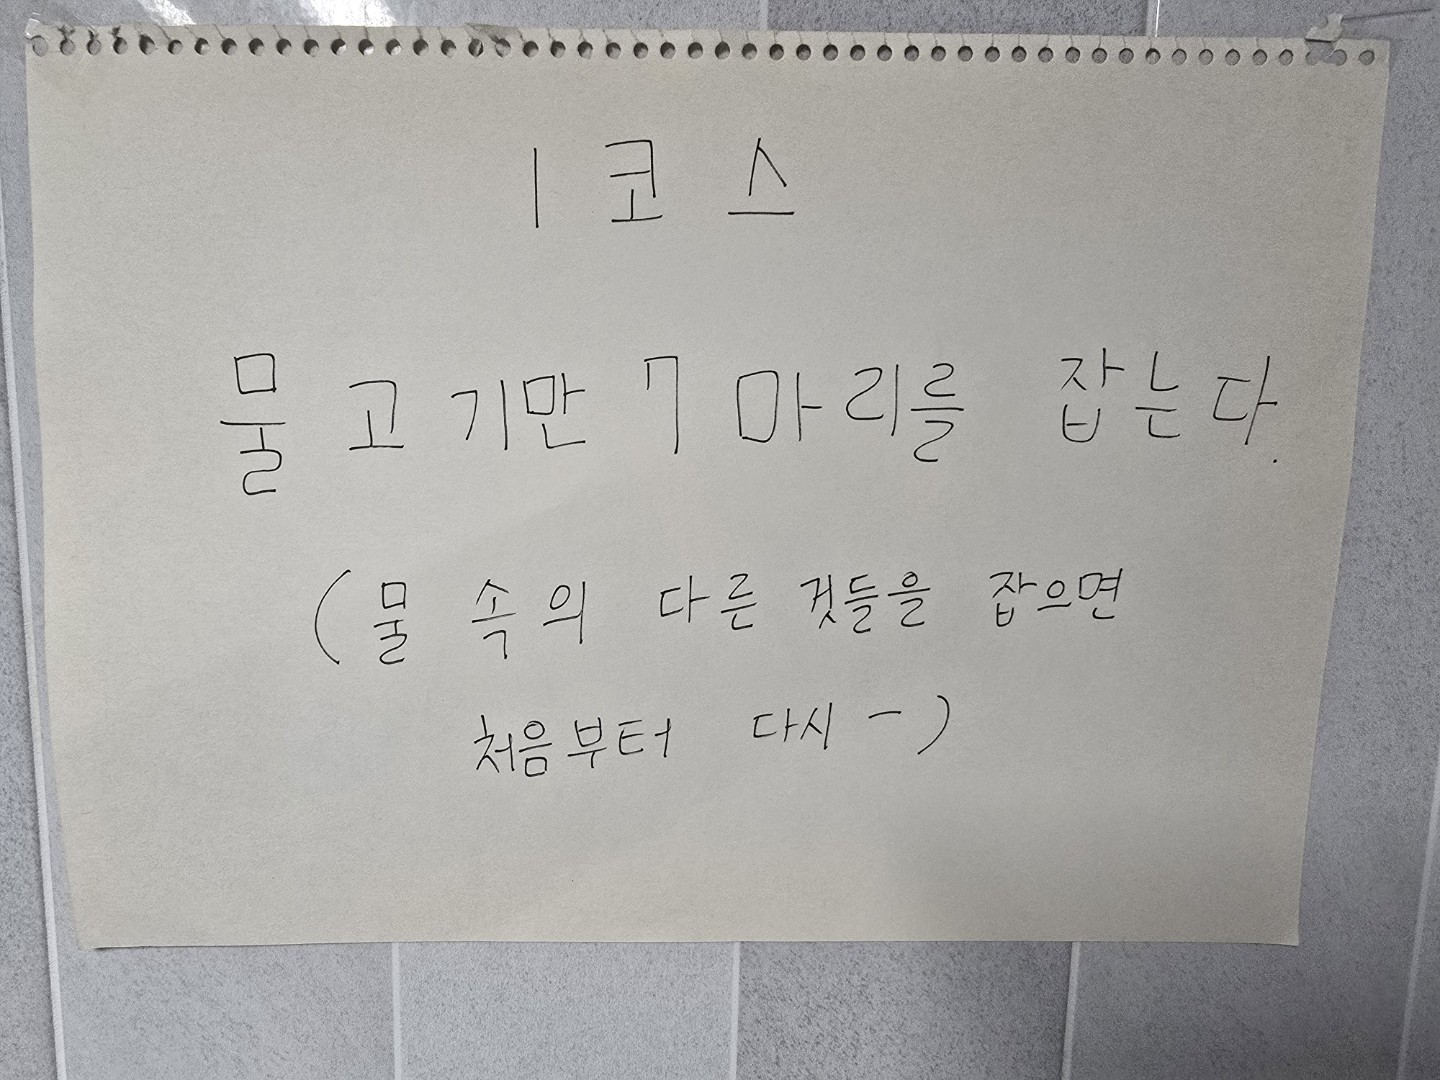 1 코스
물고기만 7마리를 잡는다.
(물 속의 다른 것들을 잡으면
처음부터 다시-)